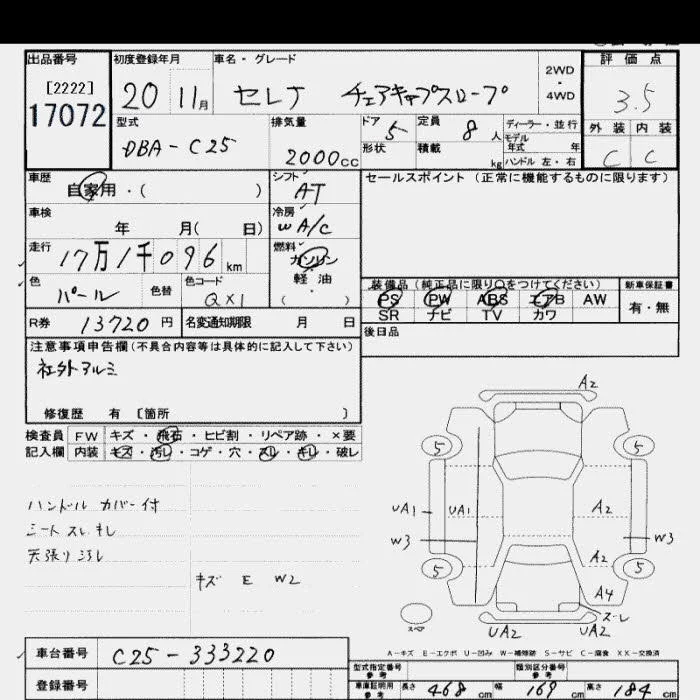 出品番号 初度登録年月 車名・グレード 2WD・4WD 評価点
[2222]
17072
20 11月 セレナ チェアキャブスロープ 3.5
型式 排気量 ドア 定員 ディーラー・並行 外装 内装
DBA-C25 2000cc 5 8人 モデル年式 年 C C
形状 積載 kg ハンドル 左・右
車歴 シフト セールスポイント (正常に機能するものに限ります)
自家用・( ) AT
車検 冷房
年 月( 日) W A/C
走行 燃料
17万1千096km ガソリン
色 色替 色コード 軽油
パール QX1 ( )
装備品 (純正品に限り○をつけてください) 新車保証書
PS PW ABS エアB AW 有・無
SR ナビ TV カワ
R券 13720円 名変通知期限 月 日
後日品
注意事項申告欄(不具合内容等は具体的に記入して下さい)
社外アルミ
修復歴 有 [箇所 ]
検査員 FW キズ・飛石・ヒビ割・リペア跡・×要
記入欄 内装 キズ・汚レ・コゲ・穴・スレ・キレ・破レ
ハンドルカバー付
シートスレキレ
天張りヨゴレ
キズ E W2
A2
5 5
UA1 UA1 A2
W3 W3
A2
5 5
A4
スレ
スペア
UA2 UA2
A-キズ E-エクボ U-凹み W-補修跡 S-サビ C-腐食 XX-交換済
車台番号 C25-333220
型式指定番号 参考 類別区分番号 参考
登録番号
車庫証明用 参考 長さ 468cm 幅 169cm 高さ 184cm